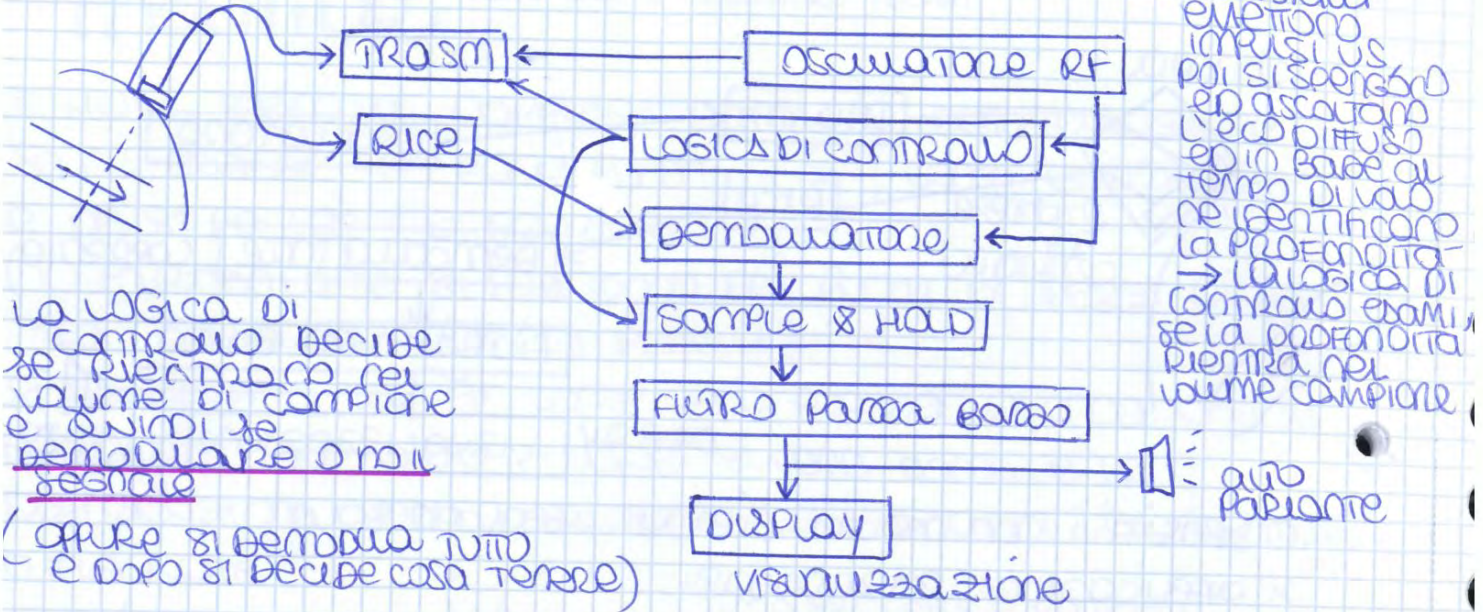 TRASM
OSCILLATORE RF
RICE
LOGICA DI CONTROLLO
DEMODULATORE
SAMPLE & HOLD
FILTRO PASSA BASSO
DISPLAY
VISUALIZZAZIONE
ALTO
PARLANTE
LA LOGICA DI
CONTROLLO DECIDE
SE RIENTRANO NEL
VOLUME DI CAMPIONE
E QUINDI SE
DEMODULARE O NO IL
SEGNALE
(OPPURE SI DEMODULA TUTTO
E DOPO SI DECIDE COSA TENERE)
EMETTONO
IMPULSI US
POI SI SPENGONO
ED ASCOLTANO
L'ECO DIFFUSO
ED IN BASE AL
TEMPO DI VOLO
NE IDENTIFICANO
LA PROFONDITA'
→ LA LOGICA DI
CONTROLLO ESAMI
SE LA PROFONDITA
RIENTRA NEL
VOLUME CAMPIONE